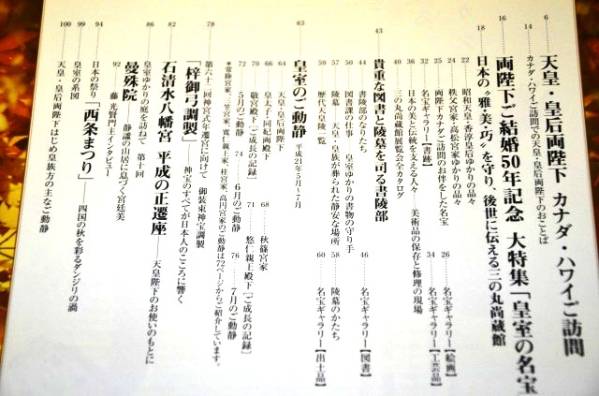 6 天皇・皇后両陛下 カナダ・ハワイご訪問
14 カナダ・ハワイご訪問での天皇・皇后両陛下のおことば
16 両陛下ご結婚50年記念 大特集「皇室の名宝
18 日本の“雅・美・巧”を守り、後世に伝える三の丸尚蔵館
22 昭和天皇・香淳皇后ゆかりの品々
24 秩父宮家・高松宮家ゆかりの品々
25 両陛下カナダご訪問のお伴をした名宝
26 名宝ギャラリー【絵画】
32 名宝ギャラリー【書跡】
34 名宝ギャラリー【工芸品】
36 日本の美と伝統を支える人々――美術品の保存と修理の現場
40 三の丸尚蔵館展覧会全カタログ
43 貴重な図書と陵墓を司る書陵部
44 書陵部のなりたち
46 名宝ギャラリー【図書】
50 図書課の仕事――皇室ゆかりの書物の守り手
57 陵墓――天皇・皇族が葬られた静安な場所
58 陵墓のかたち
59 歴代天皇陵一覧
60 名宝ギャラリー【出土品】
63 皇室のご動静 平成21年5月〜7月
64 天皇・皇后両陛下
66 皇太子・同妃両殿下
68 秋篠宮家
70 敬宮殿下「ご成長の記録」
71 悠仁親王殿下「ご成長の記録」
72 5月のご動静
74 6月のご動静
76 7月のご動静
＊常陸宮家、三笠宮家、寛仁親王家、桂宮家、高円宮家のご動静は72ページからご紹介しています。
78 第六十二回神宮式年遷宮に向けて 御装束神宝調製
「梓御弓調製」――神宝のすべてが日本人のこころに響く
82 石清水八幡宮 平成の正遷座――天皇陛下のお使いのもとに
86 皇室ゆかりの庭を訪ねて 第十回
曼殊院――静謐の山居に息づく宮廷美
92 藤 光賢門主インタビュー
94 日本の祭り「西条まつり」――四国の秋を彩るダンジリの渦
99 皇室の系図
100 天皇・皇后両陛下はじめ皇族方の主なご動静